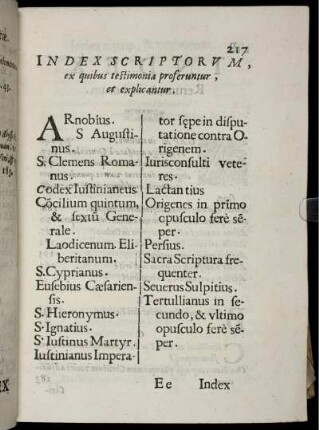 217
INDEX SCRIPTORVM,
ex quibus testimonia proferuntur,
et explicantur.
ARnobius.
S Augusti-
nus.
S. Clemens Roma-
nus.
Codex Iustinianeus
Cõcilium quintum,
& sextũ Gene-
rale.
Laodicenum. Eli-
beritanum.
S. Cyprianus.
Eusebius Cæsarien-
sis.
S. Hieronymus.
S. Ignatius.
Sᵗ Iustinus Martyr.
Iustinianus Impera-
tor sępe in dispu-
tatione contra O-
rigenem.
Iurisconsulti vete-
res.
Lactantius
Origenes in primo
opusculo ferè sẽ-
per.
Persius.
Sacra Scriptura fre-
quenter.
Seuerus Sulpitius.
Tertullianus in se-
cundo, & vltimo
opusculo ferè sẽ-
per.
Ee Index